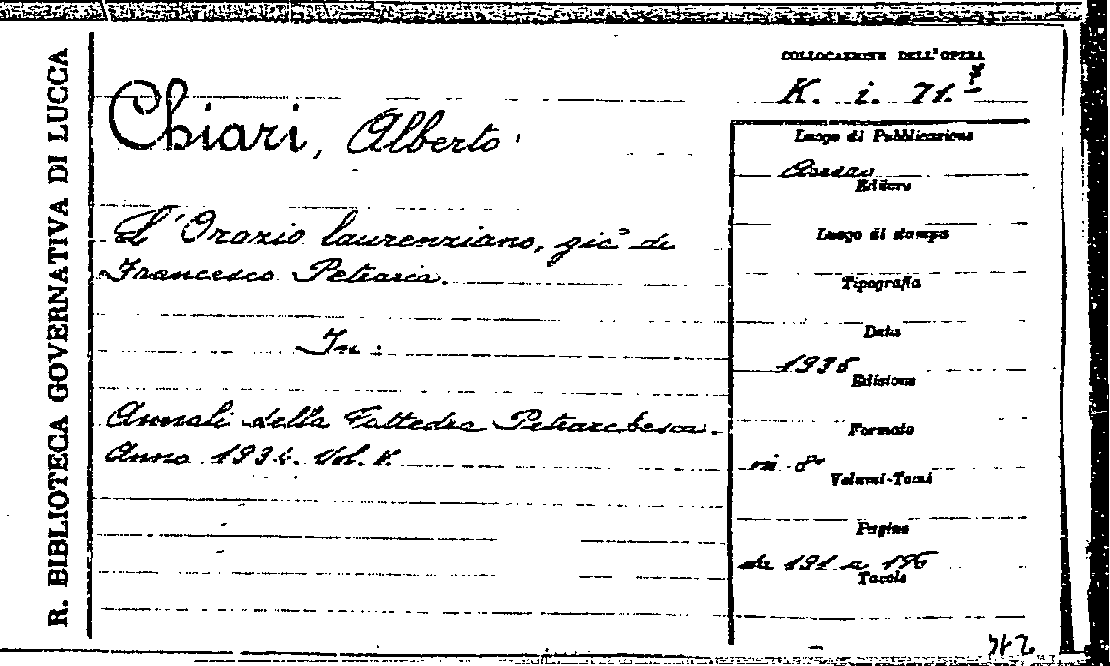 R. BIBLIOTECA GOVERNATIVA DI LUCCA
COLLOCAZIONE DELL'OPERA
K. i. 71.
Chiari, Alberto
L'Orazio laurenziano, già di
Francesco Petrarca.
In:
Annali della Cattedra Petrarchesca.
Anno 1934. Vol. V.
Luogo di Pubblicazione
Arezzo
Editore
Luogo di stampa
Tipografia
Data
1935
Edizione
Formato
in 8°
Volumi-Tomi
Pagine
da 191 a 196
Tavole